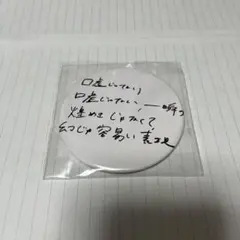 口虚じゃない
口虚じゃない, 一瞬の
煌めきじゃなくて
幻じゃ容易い